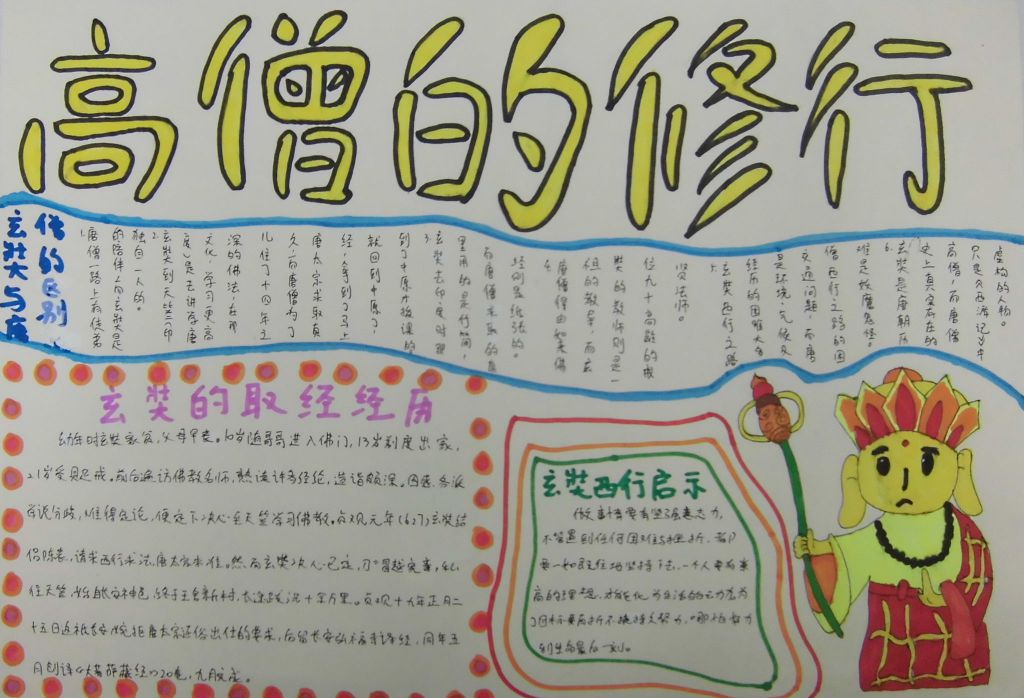 高僧的修行
玄奘与唐
僧的区别
1.唐僧一路上有徒弟
的陪伴,而玄奘是
独自一人的。
2.玄奘到天竺(印
度)是去讲唐
文化,学习更高
深的佛法,在那
儿住了十四年之
久,而唐僧为了
唐太宗求取真
经,拿到了马上
就回到中原了,
到了中原才授课的
3.玄奘去印度时那
里用的是竹简,
而唐僧求取的真
经则是纸张的。
4.唐僧得由如来佛
祖的教导,而玄
奘的教师则是一
位九十高龄的戒
贤法师。
5.玄奘西行之路
经历的困难大多
是环境,气候及
交通问题,而唐
僧西行之路的困
难是妖魔鬼怪。
6.玄奘是唐朝历
史上真实存在的
高僧,而唐僧
只是《西游记》中
虚构的人物。
玄奘的取经经历
幼年时玄奘家贫,父母早丧。10岁随哥哥进入佛门,13岁剃度出家,
21岁受具足戒。前后遍访佛教名师,熟读许多经论,造诣颇深。因感各派
学说分歧,难得定论,便定下决心去天竺学习佛教。贞观元年(627)玄奘结
侣陈表,请求西行求法,唐太宗未准。然而玄奘决心已定,乃冒越宪章,私
往天竺,始自长安神邑,终于王舍新城,长途跋涉十余万里。贞观十九年正月二
十五日返抵长安,婉拒唐太宗还俗出仕的要求,后留长安弘福寺译经,同年五
月创译《大菩萨藏经》20卷,九月完成。
玄奘西行启示
做事情要有坚强意志力,
不管遇到任何困难与挫折,都
要一如既往地坚持下去,一个人要有崇
高的理想,才能化为生活的动力,为
了目标要百折不挠持久努力,哪怕努力
到生命最后一刻。